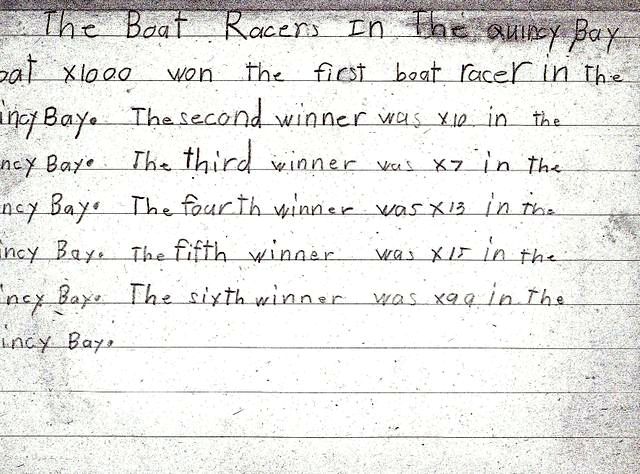 The Boat Racers In The Quincy Bay
oat x1000 won the first boat racer in the
incy Bay. The second winner was x10 in the
ncy Bay. The third winner was x7 in the
ncy Bay. The fourth winner was x13 in the
incy Bay. The fifth winner was x15 in the
incy Bay. The sixth winner was x99 in the
incy Bay.